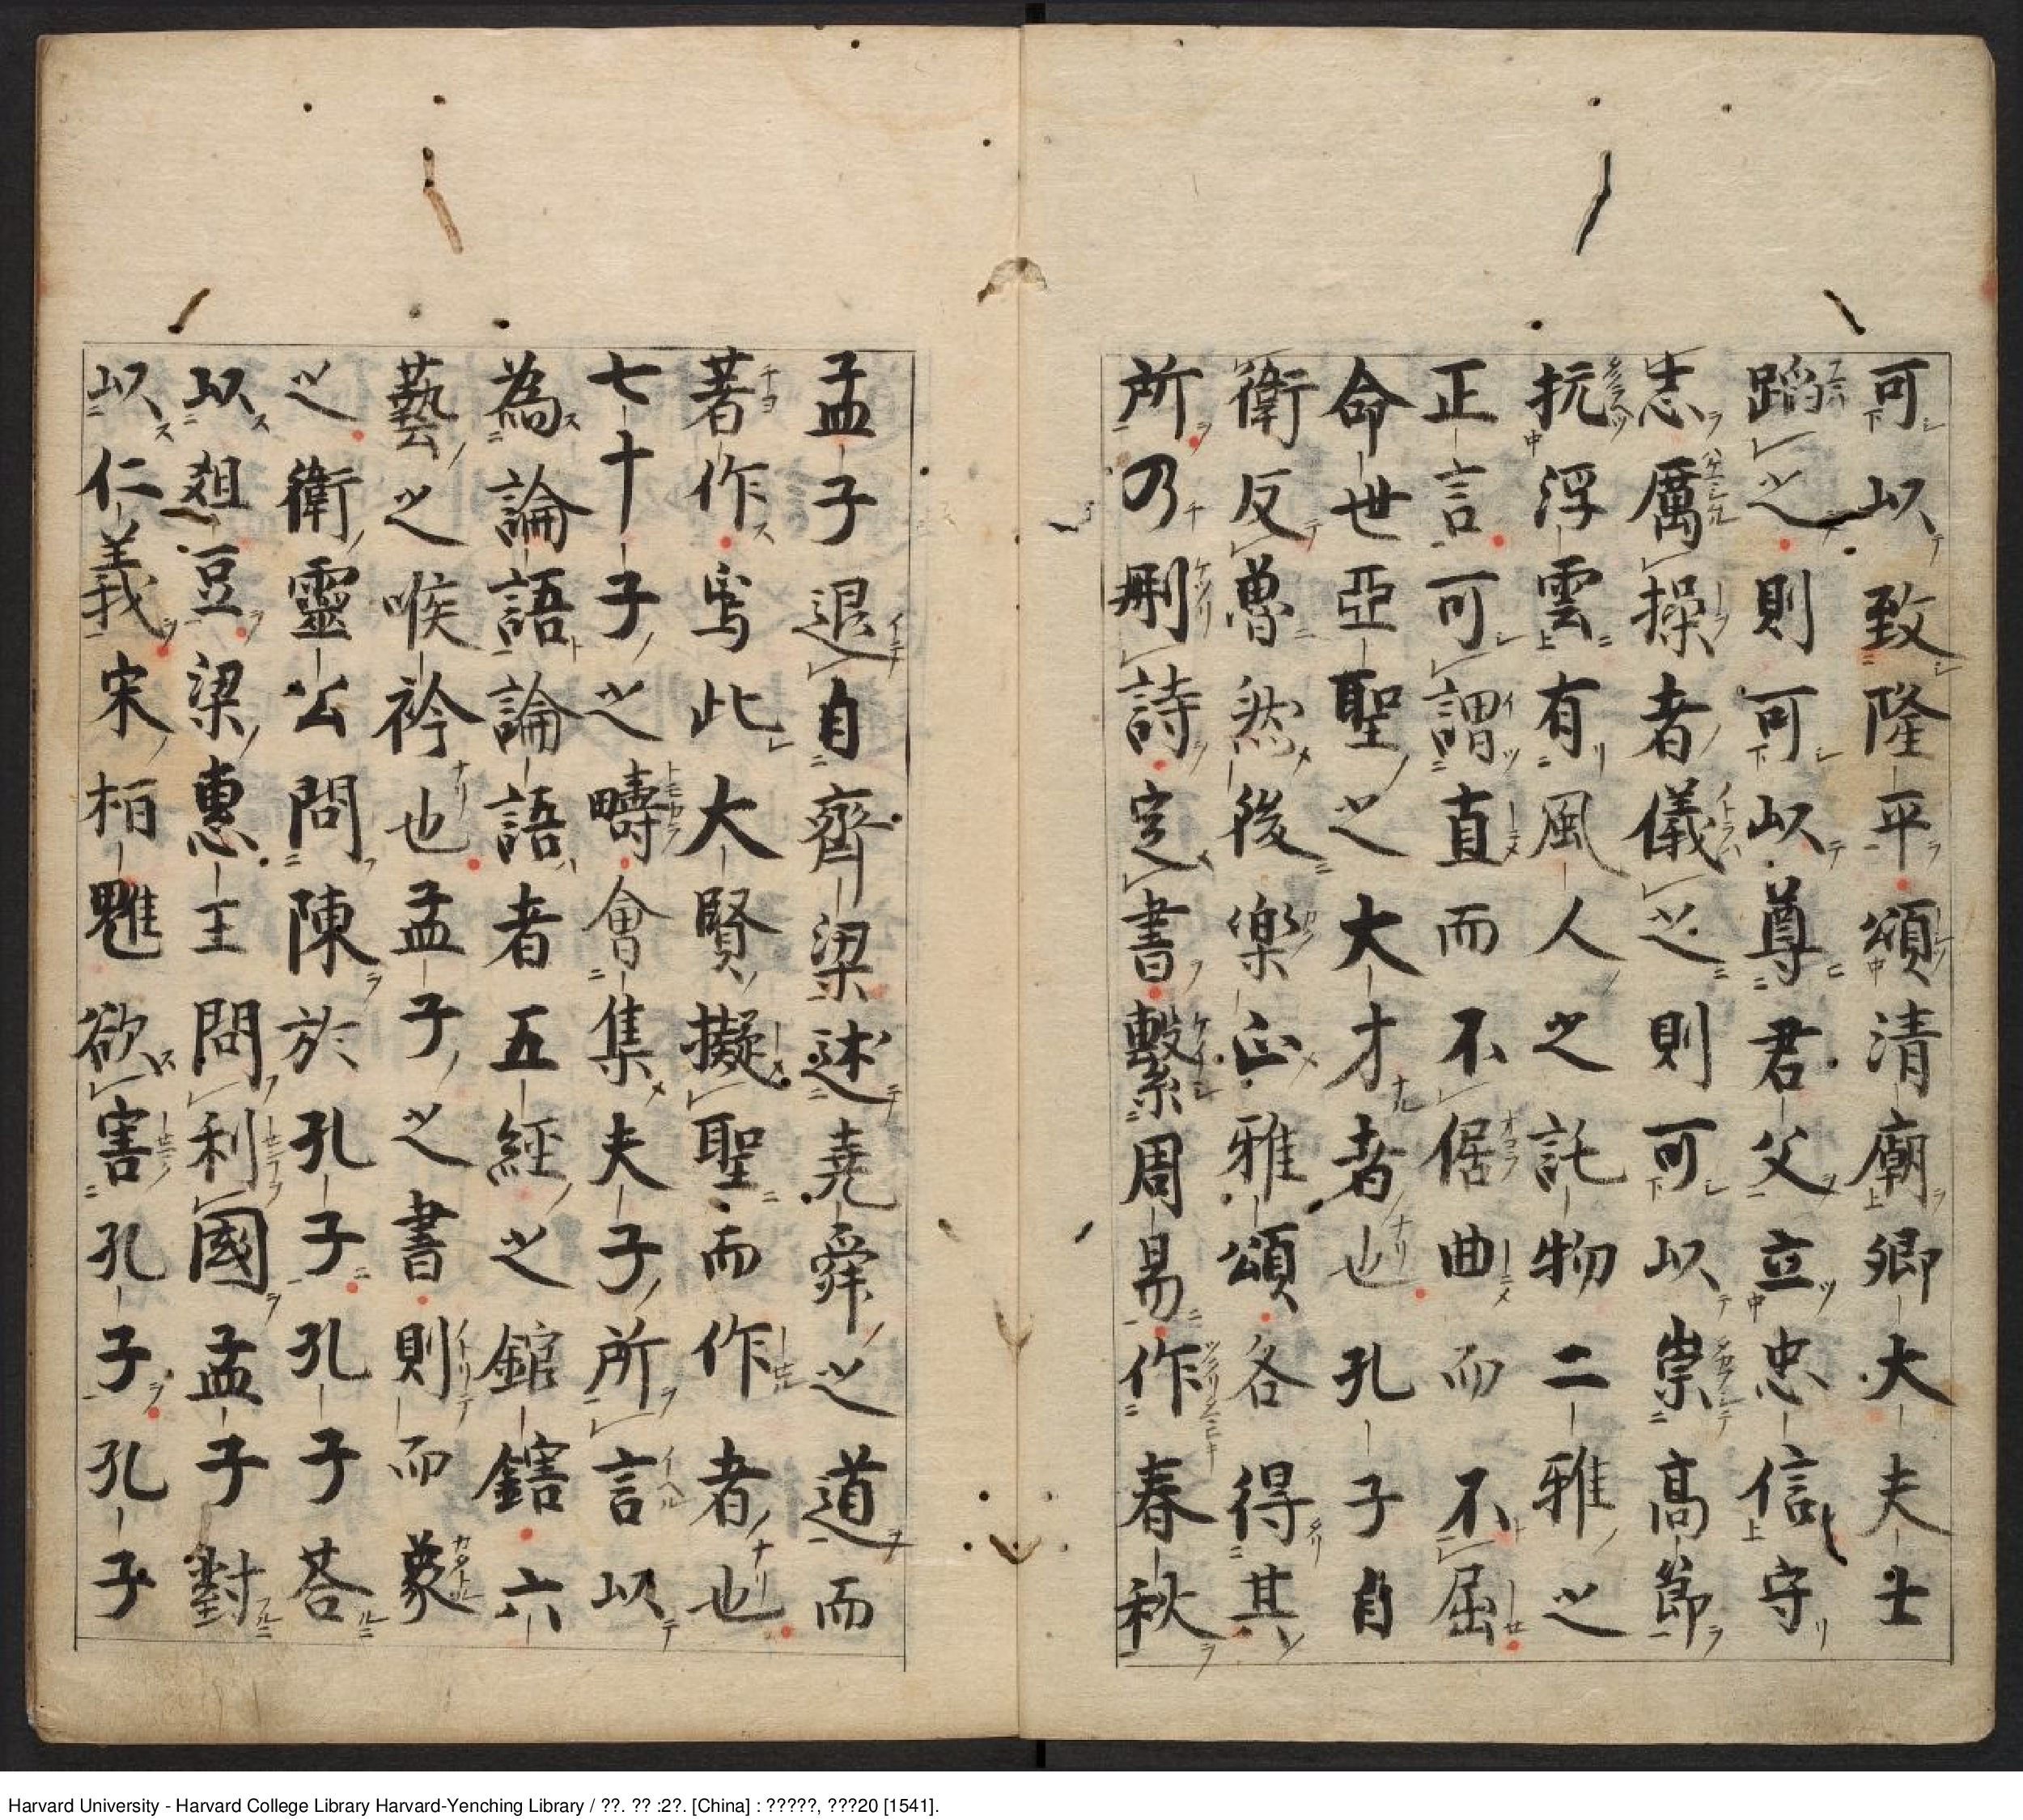 可以致隆平頌清廟卿大夫士
蹈之則可以尊君父立忠信守
志厲操者儀之則可以崇高節
抗浮雲有風人之託物二雅之
正言可謂直而不倨曲而不屈
命世亞聖之大才者也孔子自
衛反魯然後樂正雅頌各得其
所乃刪詩定書繫周易作春秋
孟子退自齊梁述堯舜之道而
著作焉此大賢擬聖而作者也
七十子之疇會集夫子所言以
為論語論語者五經之錧鎋六
藝之喉衿也孟子之書則而蒙
之衛靈公問陳於孔子孔子荅
以爼豆梁惠王問利國孟子對
以仁義宋栢魋欲害孔子孔子
Harvard University - Harvard College Library Harvard-Yenching Library / ??. ?? :2?. [China] : ?????, ???20 [1541].